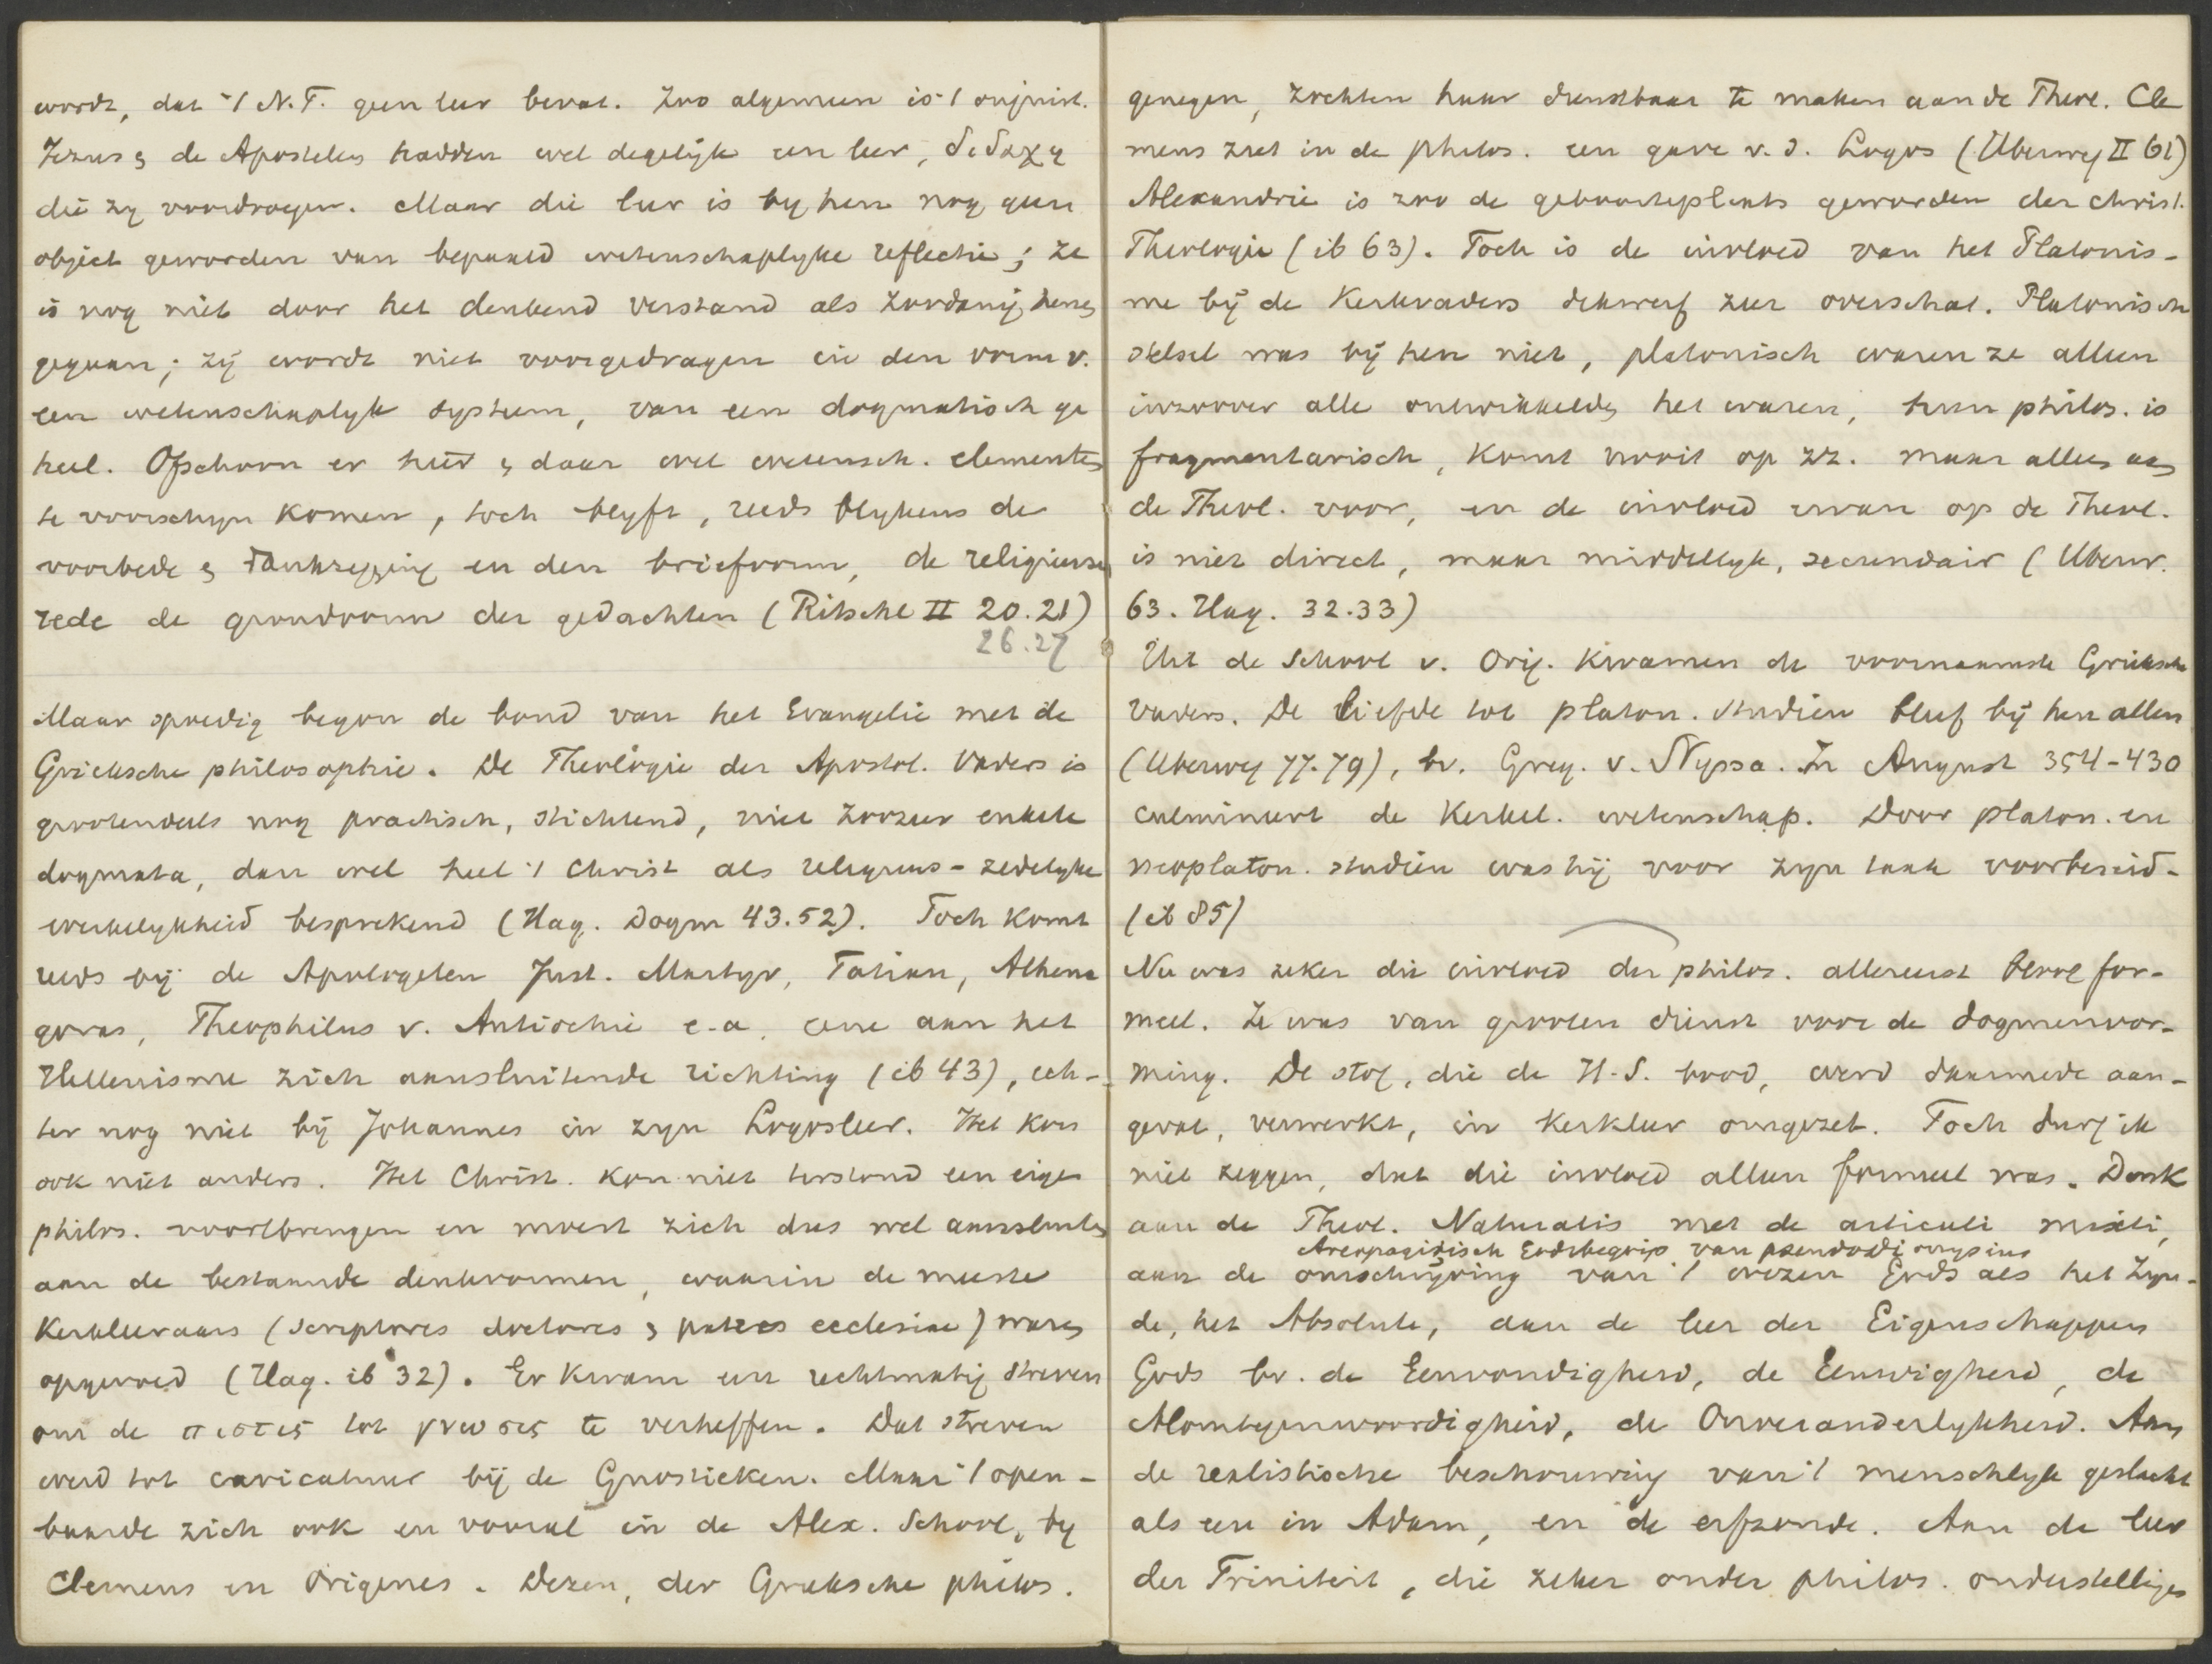 wordt, dat 't N.T. geen leer bevat. Zoo algemeen is 't onjuist.
Jezus & de Apostelen hadden wel degelijk een leer, διδαχη
die zy voordroegen. Maar die leer is by hen nog geen
object geworden van bepaald wetenschaplyke reflectie; ze
is nog niet door het denkend verstand als zoodanig heen
gegaan; zij wordt niet voorgedragen in den vorm v.
een wetenschaplyk systeem, van een dogmatisch ge
heel. Ofschoon er hier & daar wel wetensch. elementen
te voorschyn komen, toch blyft, reeds blykens de
voorbede & dankzegging en den briefvorm, de religieuse
rede de grondvorm der gedachten (Ritschl II 20.21)
26.27
Maar spoedig begon de bond van het Evangelie met de
Grieksche philosophie. De Theologie der Apostol. Vaders is
grootendeels nog practisch, stichtend, niet zoozeer enkele
dogmata, dan wel heel 't Christ als religieus-zedelyke
werkelykheid besprekend (Hag. Dogm 43.52). Toch komt
reeds bij de Apologeten Just. Martyr, Tatian, Athena
goras, Theophilus v. Antiochie e.a. eene aan het
Hellenisme zich aansluitende richting (ib 43), ech-
ter nog niet bij Johannes in zyn Logosleer. Het kon
ook niet anders. Het Christ. kon niet terstond een eigen
philos. voortbrengen en moest zich dus wel aansluiten
aan de bestaande denkvormen, waarin de meeste
Kerkleeraars (scriptores doctores & patres ecclesiae) waren
opgevoed (Hag. ib 32). Er kwam een rechtmatig streven
om de πιστις tot γνωσις te verheffen. Dat streven
werd tot caricatuur bij de Gnostieken. Maar 't open-
baarde zich ook en vooral in de Alex. School, by
Clemens en Origenes. Dezen, der Grieksche philos.
genegen, zochten haar dienstbaar te maken aan de Theol. Cle
mens ziet in de philos. een gave v. d. Logos (Uberweg II 61)
Alexandrie is zoo de geboorteplaats geworden der christ.
Theologie (ib 63). Toch is de invloed van het Platonis-
me bij de Kerkvaders dikwerf zeer overschat. Platonisch
stelsel was bij hen niet, platonisch waren ze alleen
inzoover alle ontwikkelden het waren, hun philos. is
fragmentarisch, komt nooit op zz. maar alleen aan
de Theol. voor, en de invloed ervan op de Theol.
is niet direct, maar middellyk, secundair (Uberw.
63. Hag. 32.33)
Uit de School v. Orig. kwamen de voornaamste Grieksche
Vaders. De liefde tot platon. studien bleef bij hen allen
(Uberweg 77.79), bv. Greg. v. Nyssa. In August 354-430
culmineert de Kerkel. wetenschap. Door platon. en
neoplaton. studien was hij voor zyn taak voorbereid.
(ib 85)
Nu was zeker die invloed der philos. allereerst bloot for-
meel. Ze was van grooten dienst voor de dogmenvor-
ming. De stof, die de H.S. bood, werd daarmede aan-
gevat, verwerkt, in Kerkleer omgezet. Toch durf ik
niet zeggen, dat die invloed alleen formeel was. Denk
aan de Theol. Naturalis met de articuli mixti,
Areopagitisch Godsbegrip van pseudodionysius
aan de omschrijving van 't wezen Gods als het Zyn-
de, het Absolute, aan de leer der Eigenschappen
Gods bv. de Eenvoudigheid, de Eeuwigheid, de
Alomtegenwoordigheid, de Onveranderlykheid. Aan
de realistische beschouwing van 't menschelyk geslacht
als een in Adam, en de erfzonde. Aan de leer
der Triniteit, die zeker onder philos. onderstellingen